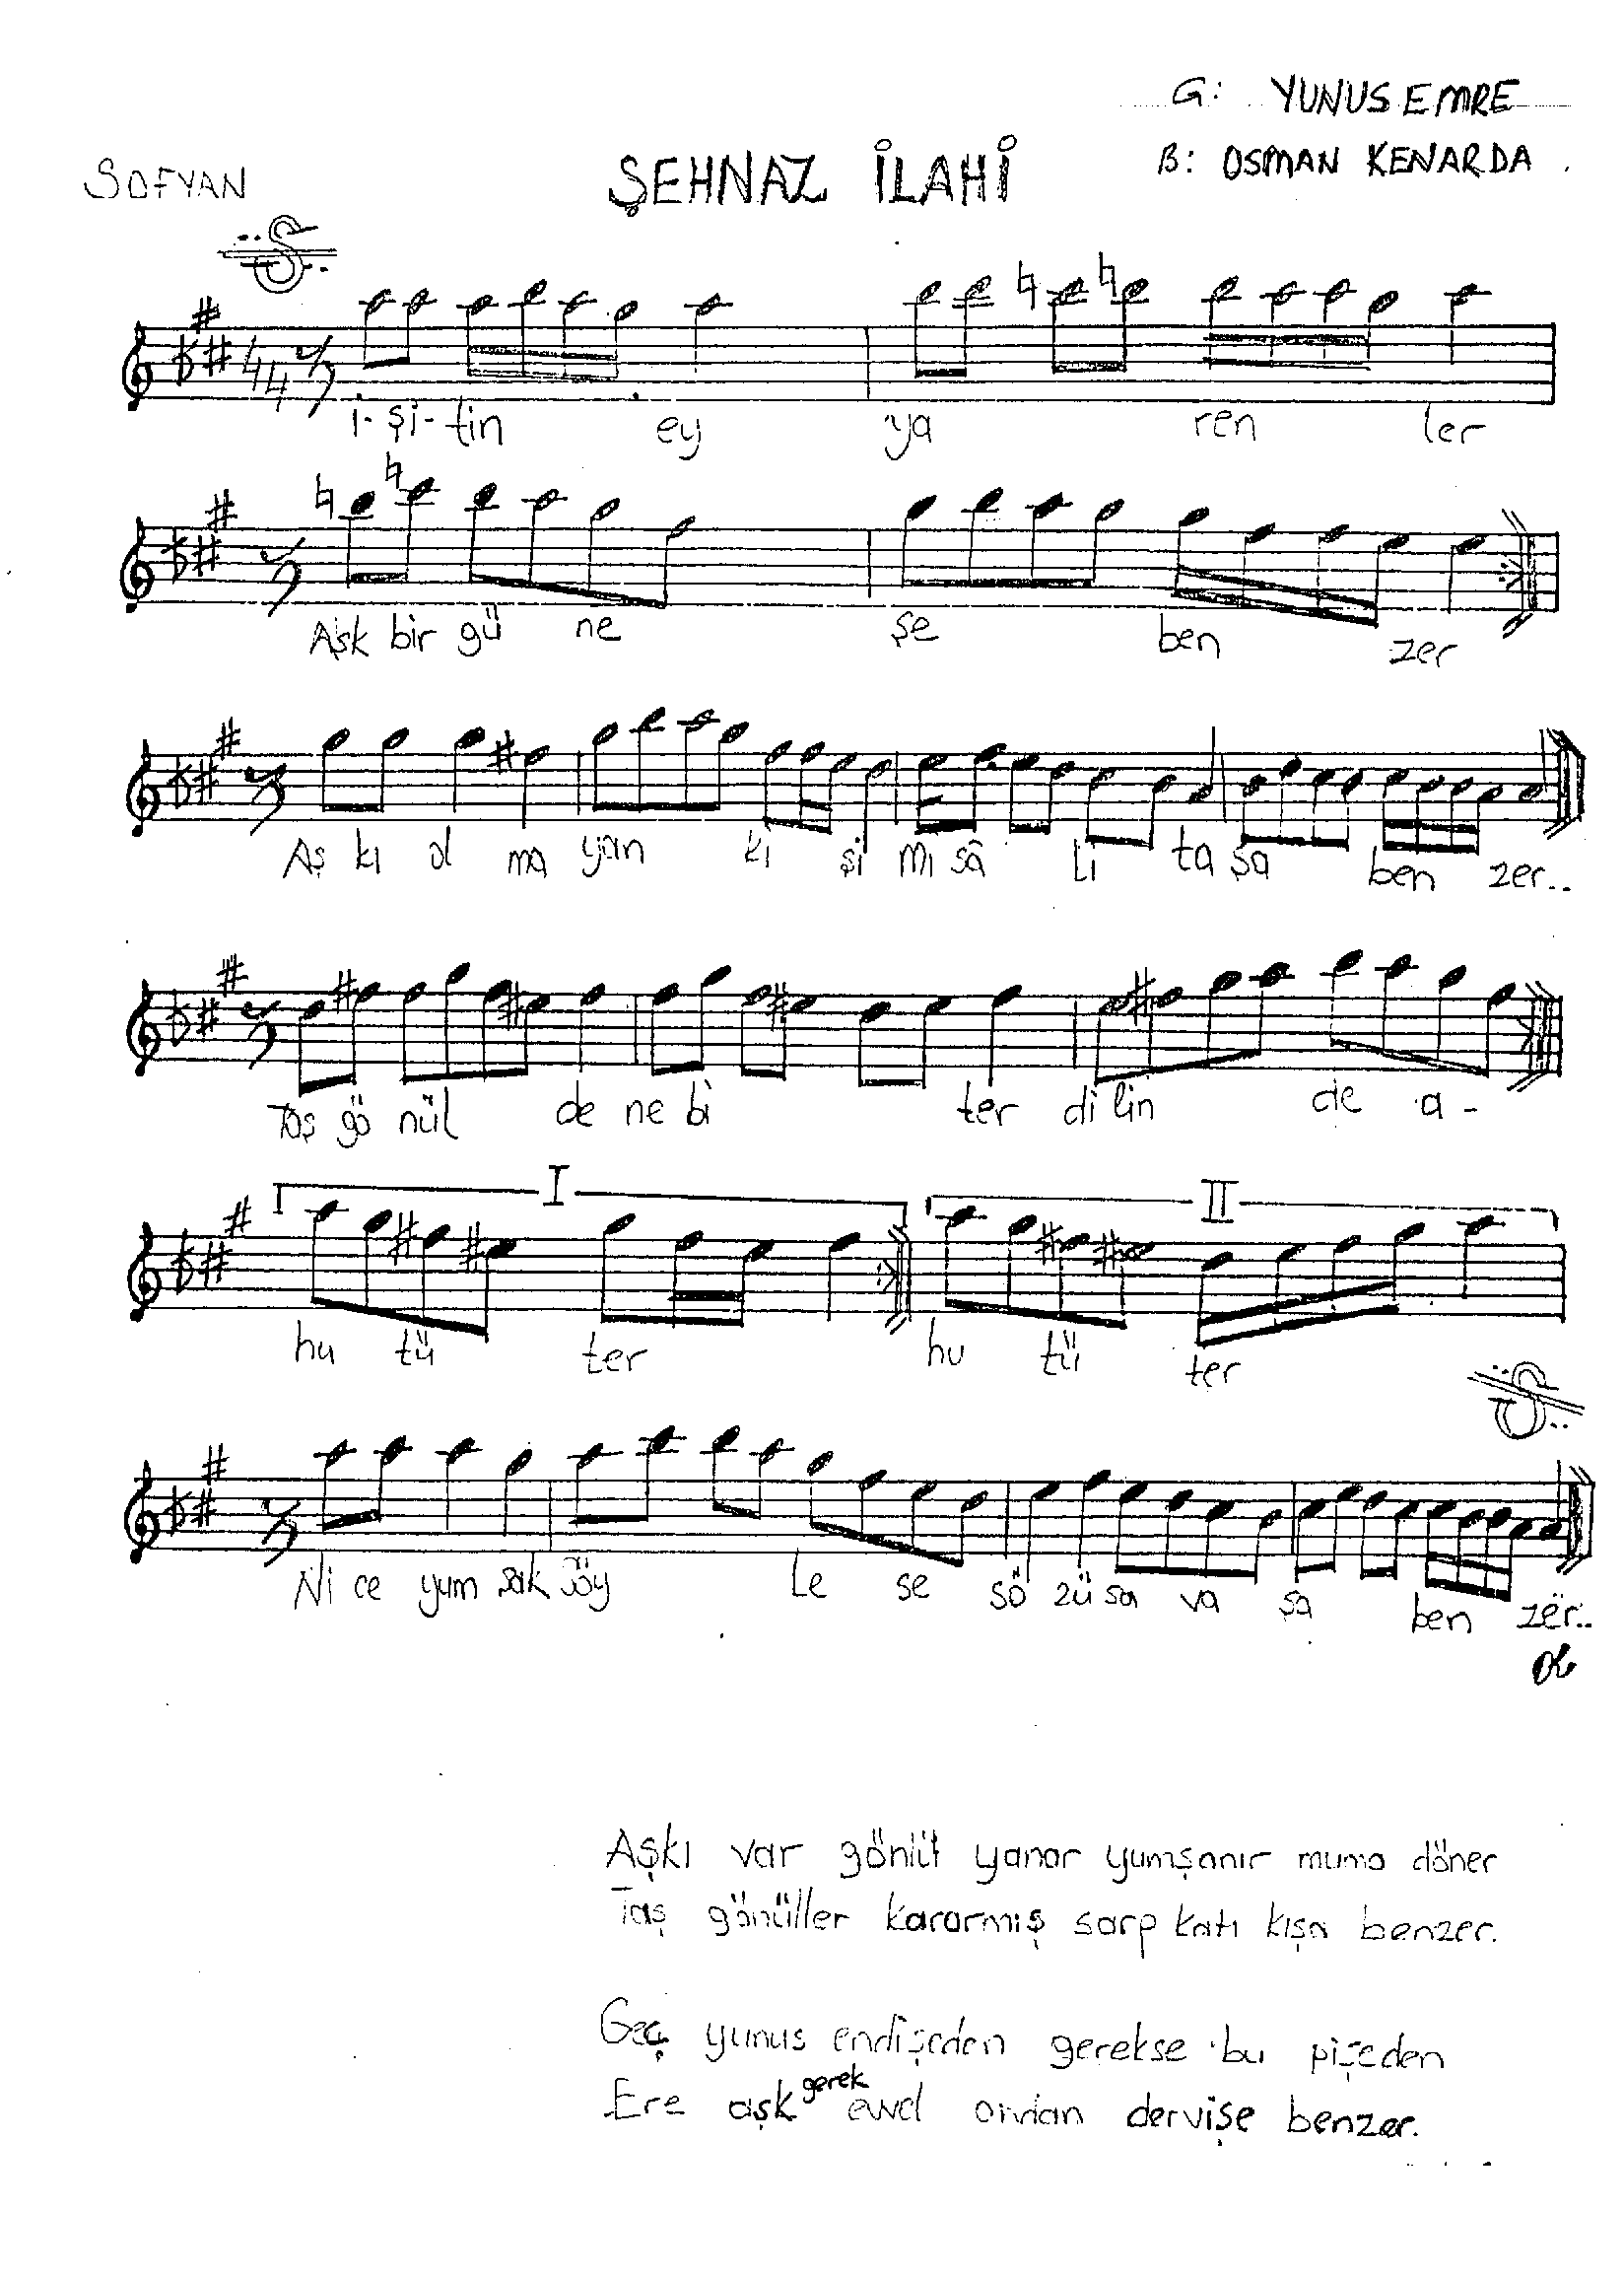 G: YUNUS EMRE
SOFYAN
ŞEHNAZ İLAHİ
B: OSMAN KENARDA
44
İ-şi-tin ey ya ren ler
Aşk bir gü ne şe ben zer
Aş kı ol ma yan ki şi mi sâ li ta şa ben zer..
Taş gö nül de ne bi ter di lin de a-
I II
hu tü ter hu tü ter
Ni ce yum şak söy le se sö zü sa va şa ben zer..
Aşkı var gönlüt yanar yumşanır muma döner
Taş gönüller kararmış sarp katı kışa benzer.
Geç yunus endişeden gerekse bu pişeden
Ere aşk gerek evvel ondan dervişe benzer.